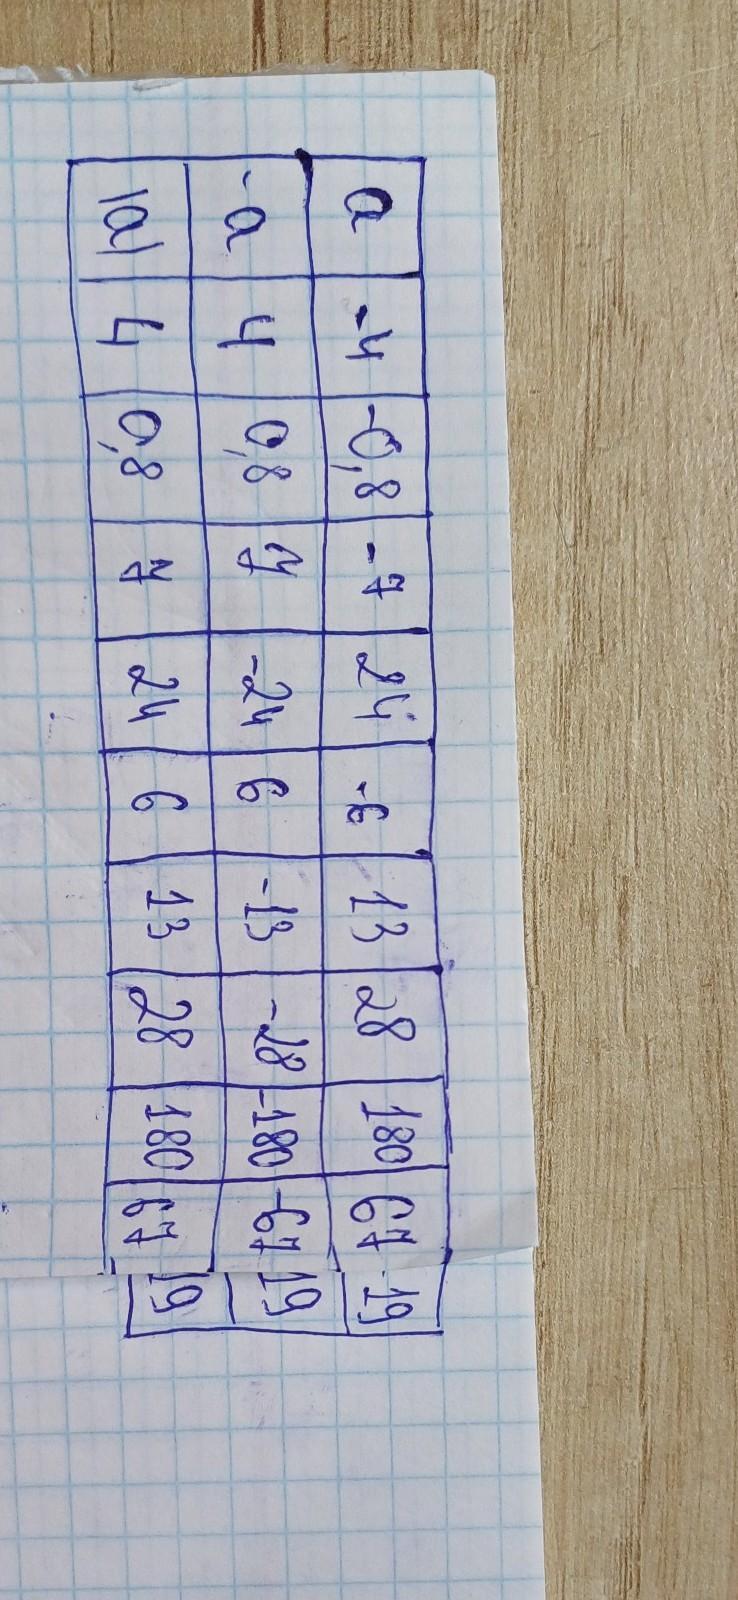 a -4 -0,8 -7 24 -6 13 28 180 67 -19
-a 4 0,8 7 -24 6 -13 -28 -180 -67 19
|a| 4 0,8 7 24 6 13 28 180 67 19